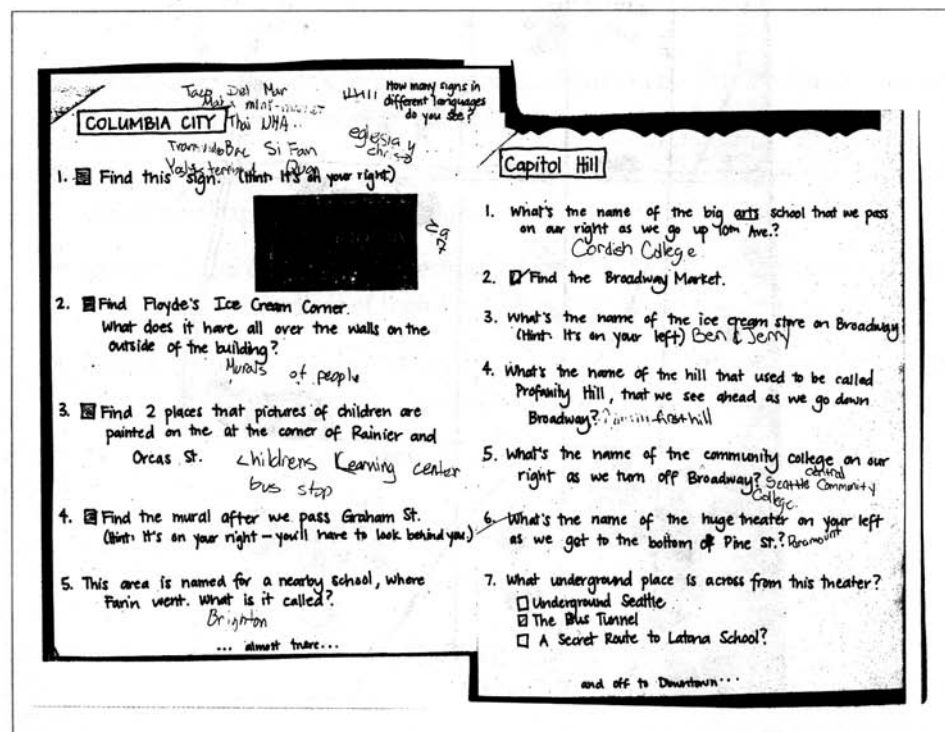 Taco Del Mar
How many signs in
different languages
do you see?
COLUMBIA CITY
Thai
Si Fan
y
1. Find this sign. (Hint: It's on your right)
2. Find Floyde's Ice Cream Corner.
What does it have all over the walls on the
outside of the building?
Murals of people
3. Find 2 places that pictures of children are
painted on the at the corner of Rainier and
Orcas St.
childrens Learning center
bus stop
4. Find the mural after we pass Graham St.
(Hint: It's on your right - you'll have to look behind you.)
5. This area is named for a nearby school, where
Farin went. What is it called?
Brighton
... almost there...
Capitol Hill
1. What's the name of the big arts school that we pass
on our right as we go up 10th Ave.?
Cordish College
2. Find the Broadway Market.
3. What's the name of the ice cream store on Broadway?
(Hint: It's on your left) Ben & Jerry
4. What's the name of the hill that used to be called
Profanity Hill, that we see ahead as we go down
Broadway? first hill
5. What's the name of the community college on our
right as we turn off Broadway? Seattle central Community
College
6. What's the name of the huge theater on your left
as we get to the bottom of Pine St.? Paramount
7. What underground place is across from this theater?
Underground Seattle
The Bus Tunnel
A Secret Route to Latona School?
and off to Downtown...